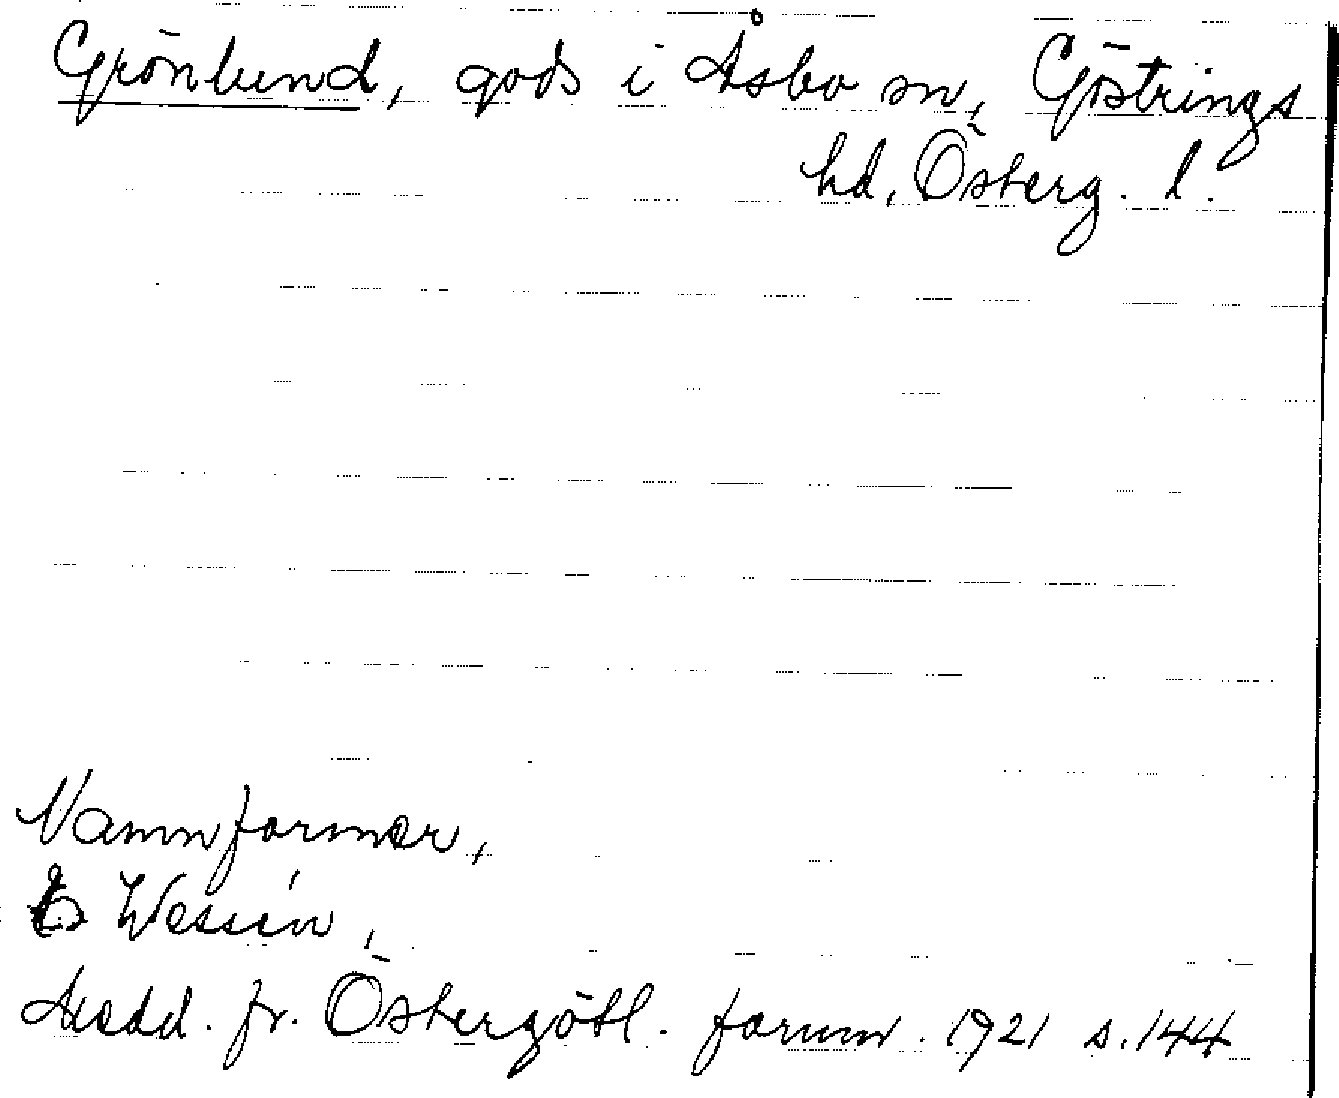 Grönlund, gods i Åsbo sn, Göstrings
hd, Österg. l.
Namnformer,
E Wessén,
Medd. fr. Östergötl. fornm. 1921 s. 144